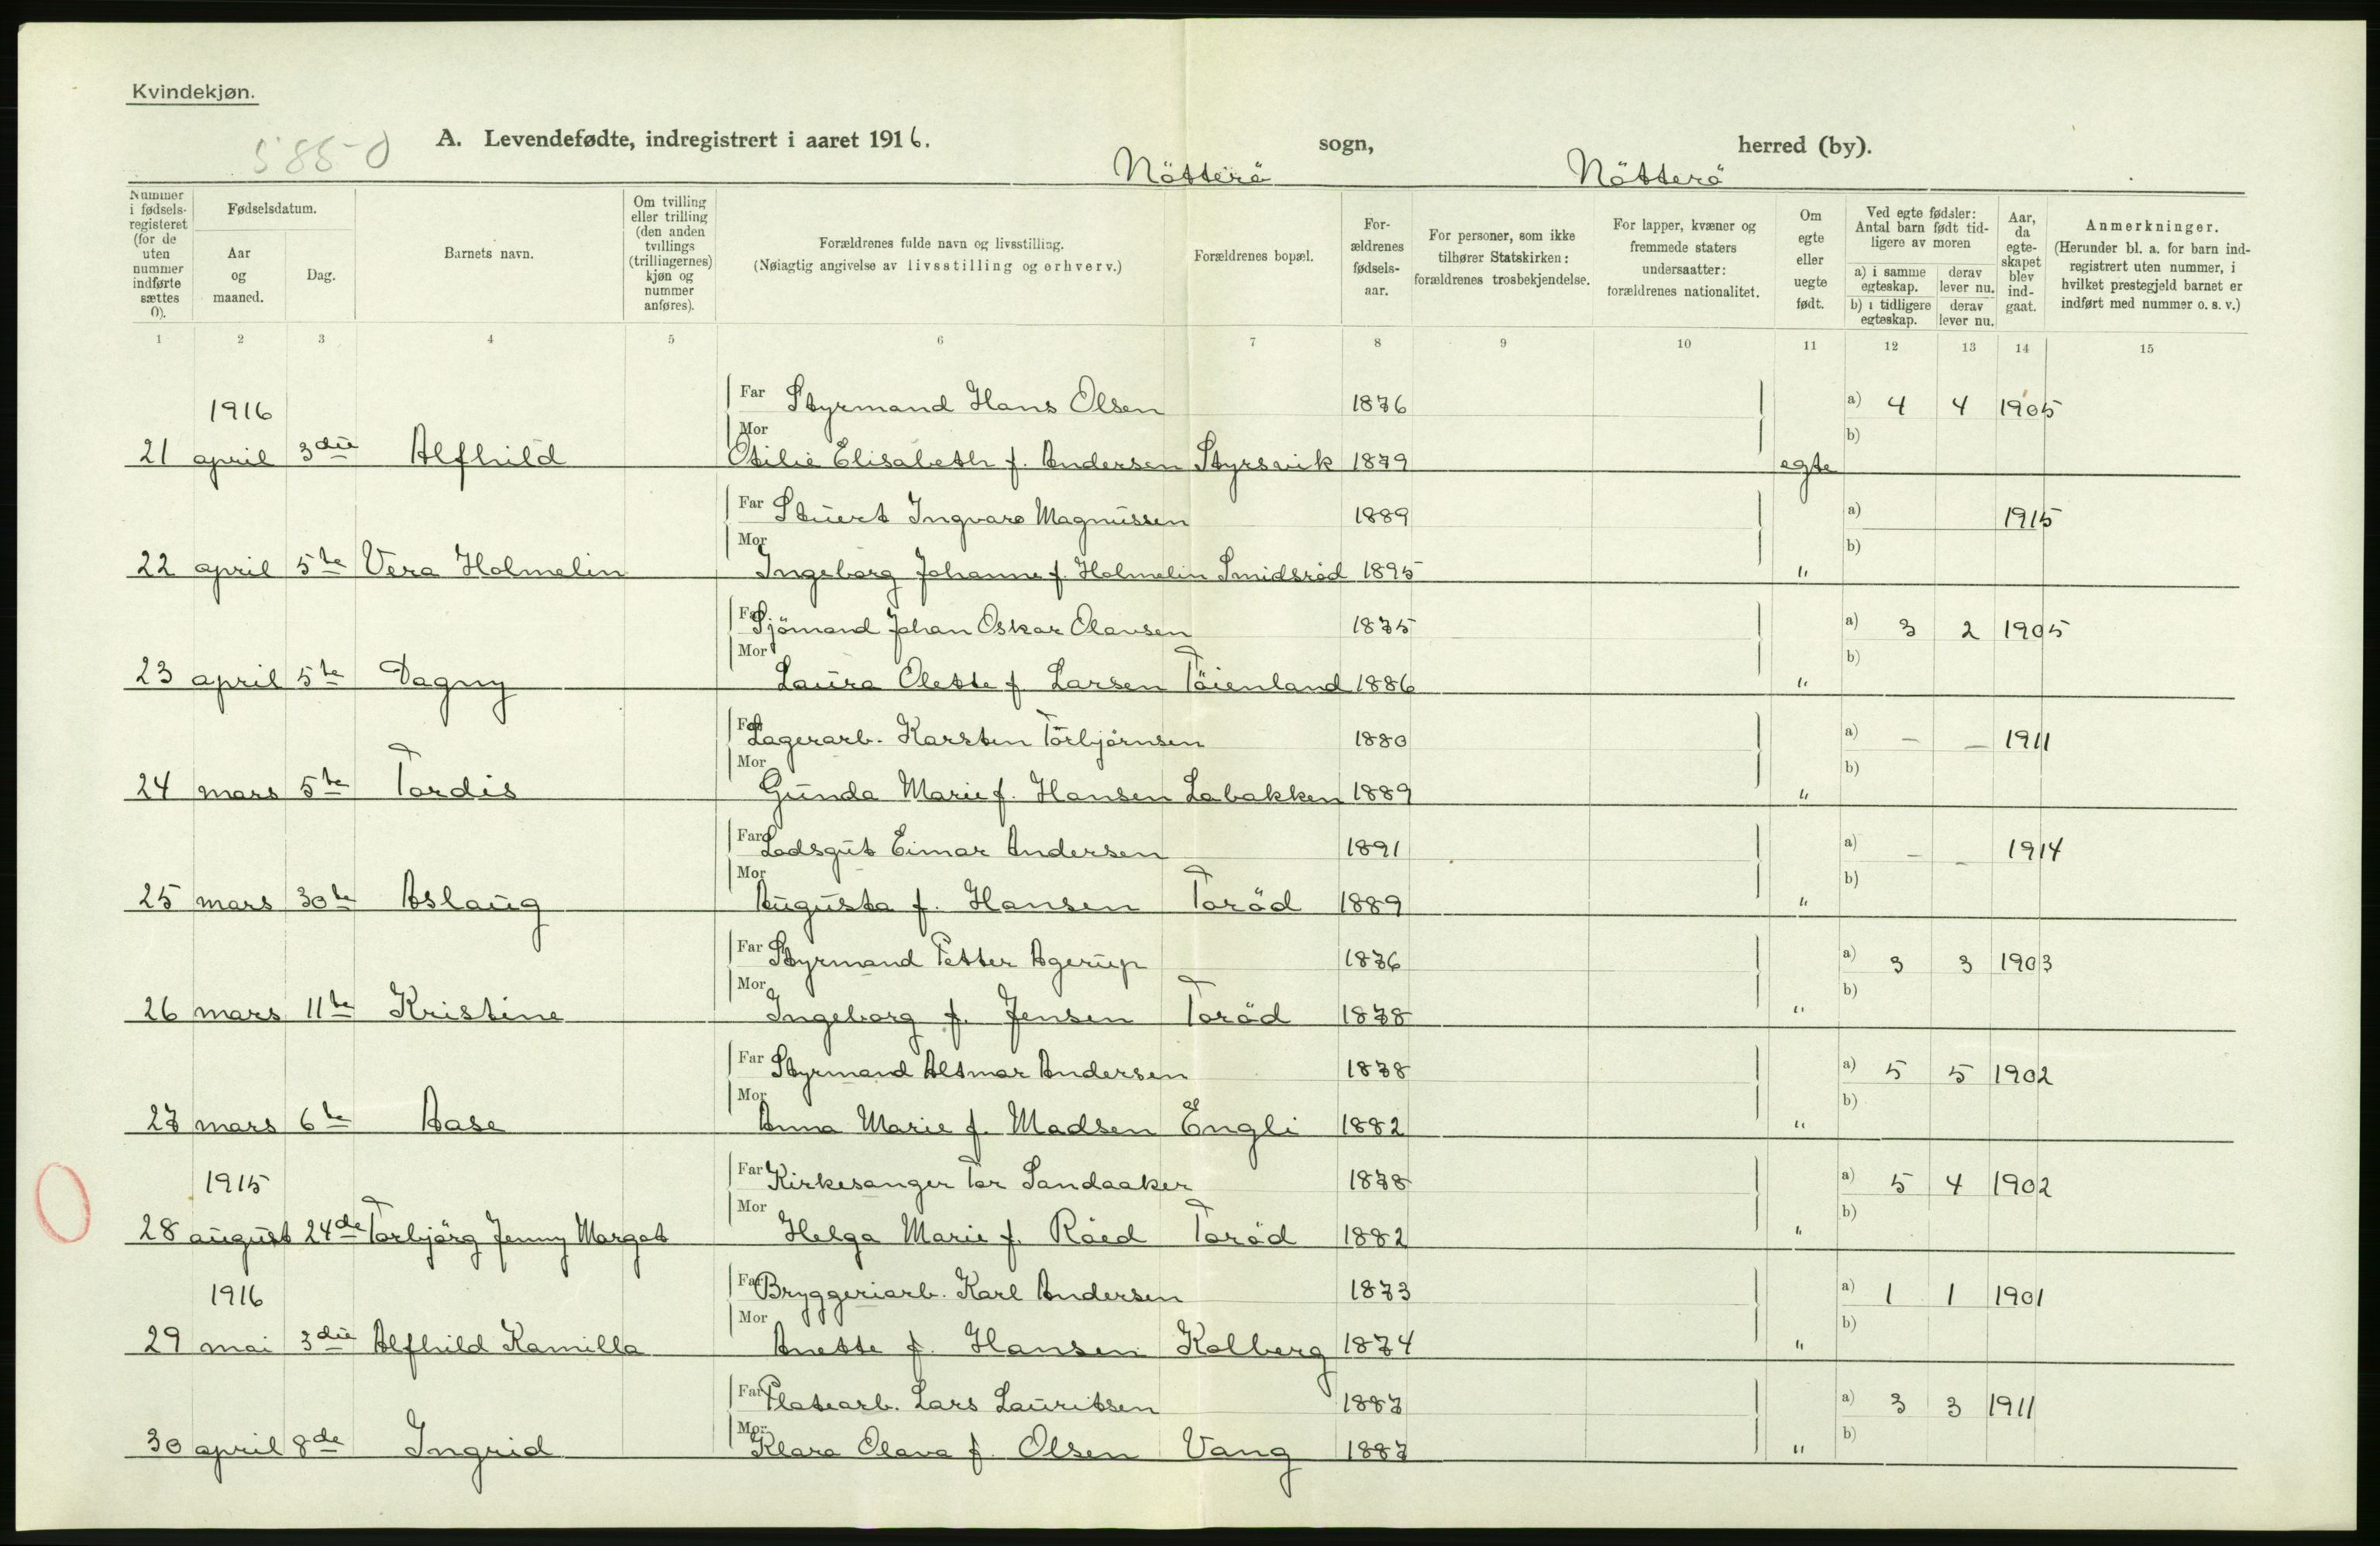 Kvindekjøn.
5850
A. Levendefødte, indregistrert i aaret 1916.
Nötterö sogn, Nötterö herred (by).
Nummer i fødselsregisteret (for de uten nummer indførte sættes 0).
Fødselsdatum.
Aar og maaned.
Dag.
Barnets navn.
Om tvilling eller trilling (den anden tvillings (trillingernes) kjøn og nummer anføres).
Forældrenes fulde navn og livsstilling.
(Nøiagtig angivelse av livsstilling og erhverv.)
Forældrenes bopæl.
Forældrenes fødselsaar.
For personer, som ikke tilhører Statskirken: forældrenes trosbekjendelse.
For lapper, kvæner og fremmede staters undersaatter: forældrenes nationalitet.
Om egte eller uegte født.
Ved egte fødsler: Antal barn født tidligere av moren
a) i samme egteskap. derav lever nu.
b) i tidligere egteskap. derav lever nu.
Aar, da egteskapet blev indgaat.
Anmerkninger.
(Herunder bl. a. for barn indregistrert uten nummer, i hvilket prestegjeld barnet er indført med nummer o. s. v.)
1 2 3 4 5 6 7 8 9 10 11 12 13 14 15
1916 Far Styrmand Hans Olsen 1876 a) 4 4 1905
21 april 3die Alfhild Mor Otilie Elisabeth f. Andersen Styrsvik 1879 egte b)
Far Stuert Ingvard Magnussen 1889 a) 1915
22 april 5te Vera Holmelin Mor Ingeborg Johanne f. Holmelin Smidsröd 1895 " b)
Far Sjömand Johan Oskar Olavsen 1875 a) 3 2 1905
23 april 5te Dagny Mor Laura Olette f. Larsen Töienland 1886 " b)
Far Lagerarb. Karsten Torbjörnsen 1880 a) - - 1911
24 mars 5te Tordis Mor Gunda Marie f. Hansen Labakken 1889 " b)
Far Lodsgut Eimar Andersen 1891 a) - - 1914
25 mars 30te Aslaug Mor Augusta f. Hansen Toröd 1889 " b)
Far Styrmand Petter Agerup 1876 a) 3 3 1903
26 mars 11te Kristine Mor Ingeborg f. Jensen Toröd 1878 " b)
Far Styrmand Altmar Andersen 1878 a) 5 5 1902
27 mars 6te Aase Mor Anna Marie f. Madsen Engli 1882 " b)
1915 Far Kirkesanger Tor Sandaaker 1878 a) 5 4 1902
28 august 24de Torbjörg Jenny Margot Mor Helga Marie f. Röed Toröd 1882 " b)
1916 Far Bryggeriarb. Karl Andersen 1873 a) 1 1 1901
29 mai 3die Alfhild Kamilla Mor Anette f. Hansen Kolberg 1874 " b)
Far Platearb. Lars Lauritsen 1887 a) 3 3 1911
30 april 8de Ingrid Mor Klara Olava f. Olsen Vang 1887 " b)